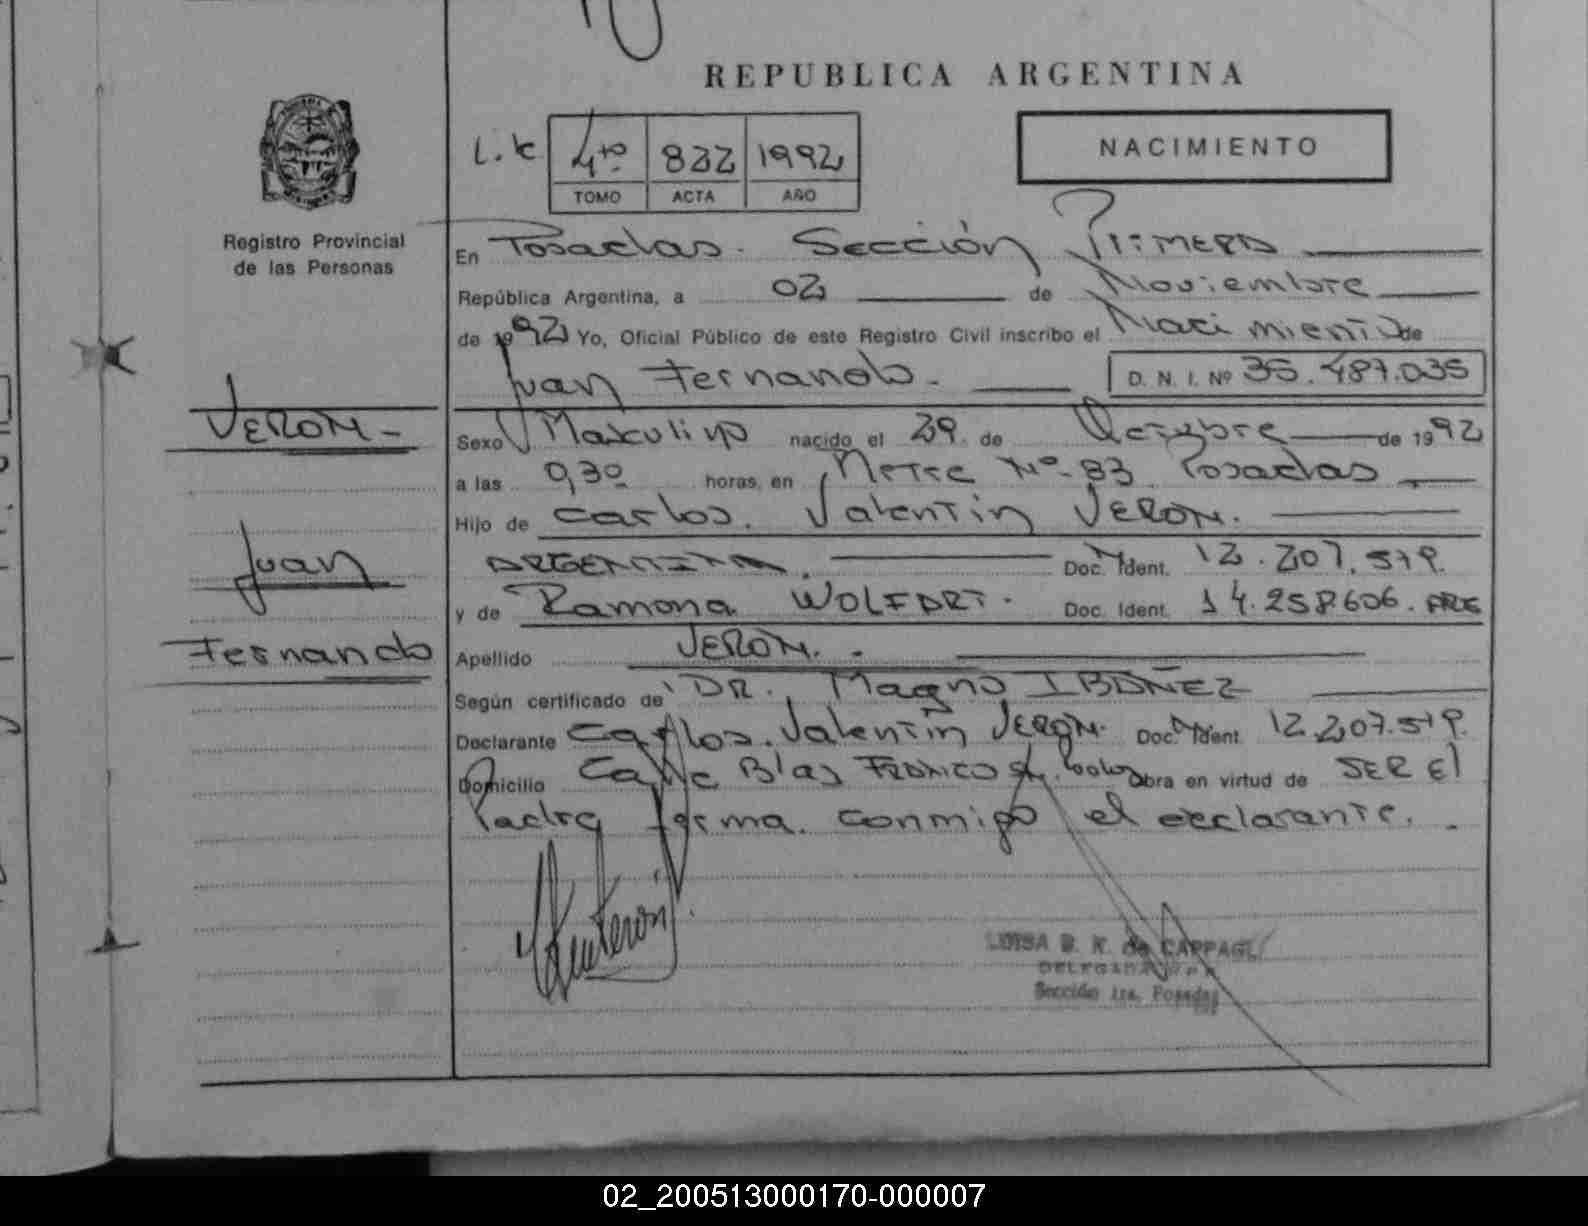 REPUBLICA ARGENTINA
4to 832 1992
TOMO ACTA AÑO
NACIMIENTO
Registro Provincial
de las Personas
En Posadas. Sección Primera
República Argentina, a 02 de Noviembre
de 1992 Yo, Oficial Público de este Registro Civil inscribo el Nacimiento de
Juan Fernando. D. N. I. Nº 35.487.035
VERON-
Sexo Masculino nacido el 29. de Octubre de 1992
a las 0,30 horas, en Mitre Nº 83 Posadas
Hijo de Carlos. Valentin VERON.
Juan
ARGENTINA. Doc. Ident. 12.207.579.
y de Ramona WOLFART. Doc. Ident. 14.258.606. ARG
Fernando
Apellido VERON.
Según certificado de DR. Magno IBAÑEZ
Declarante Carlos. Valentin VERON. Doc. Ident. 12.207.579.
Domicilio Calle Blas Obra en virtud de SER El
Padre firma conmigo el declarante.
LUISA B. K. de CAPPAGLI
DELEGADA
Sección 1ra. Posadas
02_200513000170-000007